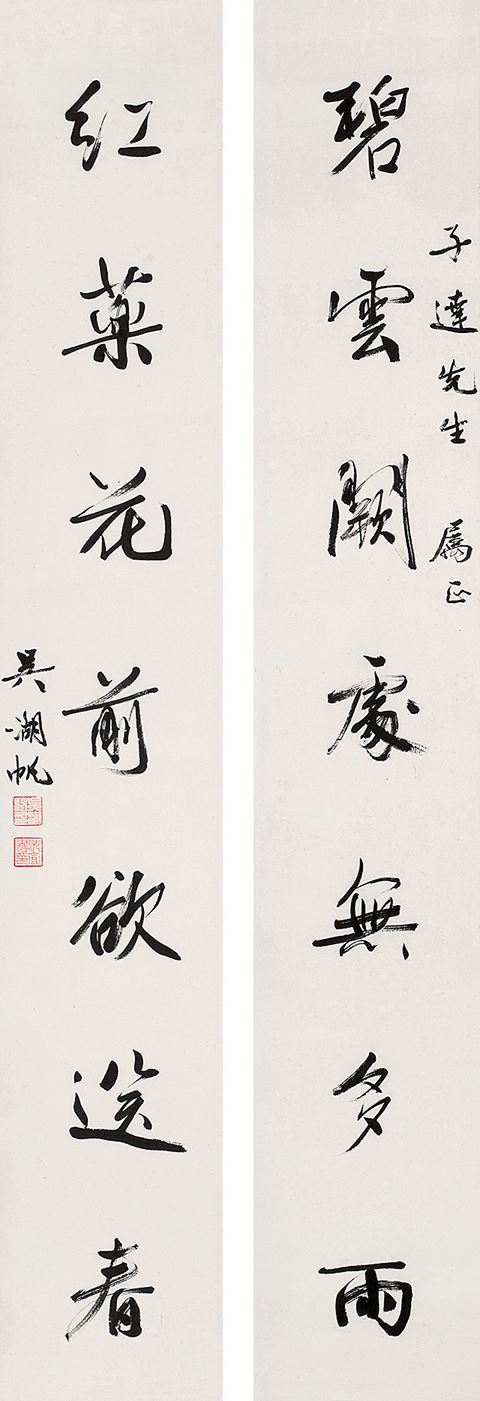 子達先生 属正
碧雲闕處無多雨
紅藥花前欲送春
吳湖帆